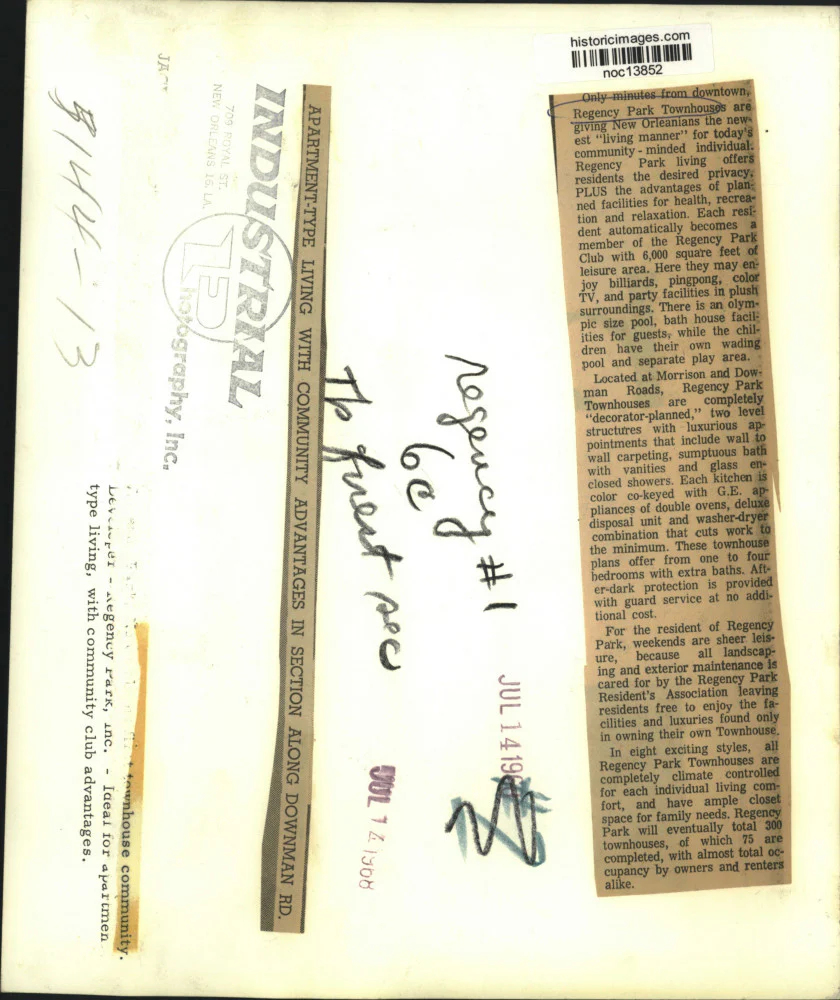 historicimages.com
noc13852
Only minutes from downtown,
Regency Park Townhouses are
giving New Orleanians the new-
est "living manner" for today's
community-minded individual.
Regency Park living offers
residents the desired privacy,
PLUS the advantages of plan-
ned facilities for health, recrea-
tion and relaxation. Each resi-
dent automatically becomes a
member of the Regency Park
Club with 6,000 square feet of
leisure area. Here they may en-
joy billiards, pingpong, color
TV, and party facilities in plush
surroundings. There is an olym-
pic size pool, bath house facil-
ities for guests, while the chil-
dren have their own wading
pool and separate play area.
Located at Morrison and Dow-
man Roads, Regency Park
Townhouses are completely
"decorator-planned," two level
structures with luxurious ap-
pointments that include wall to
wall carpeting, sumptuous bath
with vanities and glass en-
closed showers. Each kitchen is
color co-keyed with G.E. ap-
pliances of double ovens, deluxe
disposal unit and washer-dryer
combination that cuts work to
the minimum. These townhouse
plans offer from one to four
bedrooms with extra baths. Aft-
er-dark protection is provided
with guard service at no addi-
tional cost.
For the resident of Regency
Park, weekends are sheer leis-
ure, because all landscap-
ing and exterior maintenance is
cared for by the Regency Park
Resident's Association leaving
residents free to enjoy the fa-
cilities and luxuries found only
in owning their own Townhouse.
In eight exciting styles, all
Regency Park Townhouses are
completely climate controlled
for each individual living com-
fort, and have ample closet
space for family needs. Regency
Park will eventually total 300
townhouses, of which 75 are
completed, with almost total oc-
cupancy by owners and renters
alike.
JUL 14 196
Regency #1
6c
JUL 14 1968
APARTMENT-TYPE LIVING WITH COMMUNITY ADVANTAGES IN SECTION ALONG DOWNMAN RD.
INDUSTRIAL
Photography, Inc.
709 ROYAL ST.
NEW ORLEANS 16, LA.
townhouse community.
Developer - Regency Park, Inc. - Ideal for apartmen
type living, with community club advantages.
8144-13